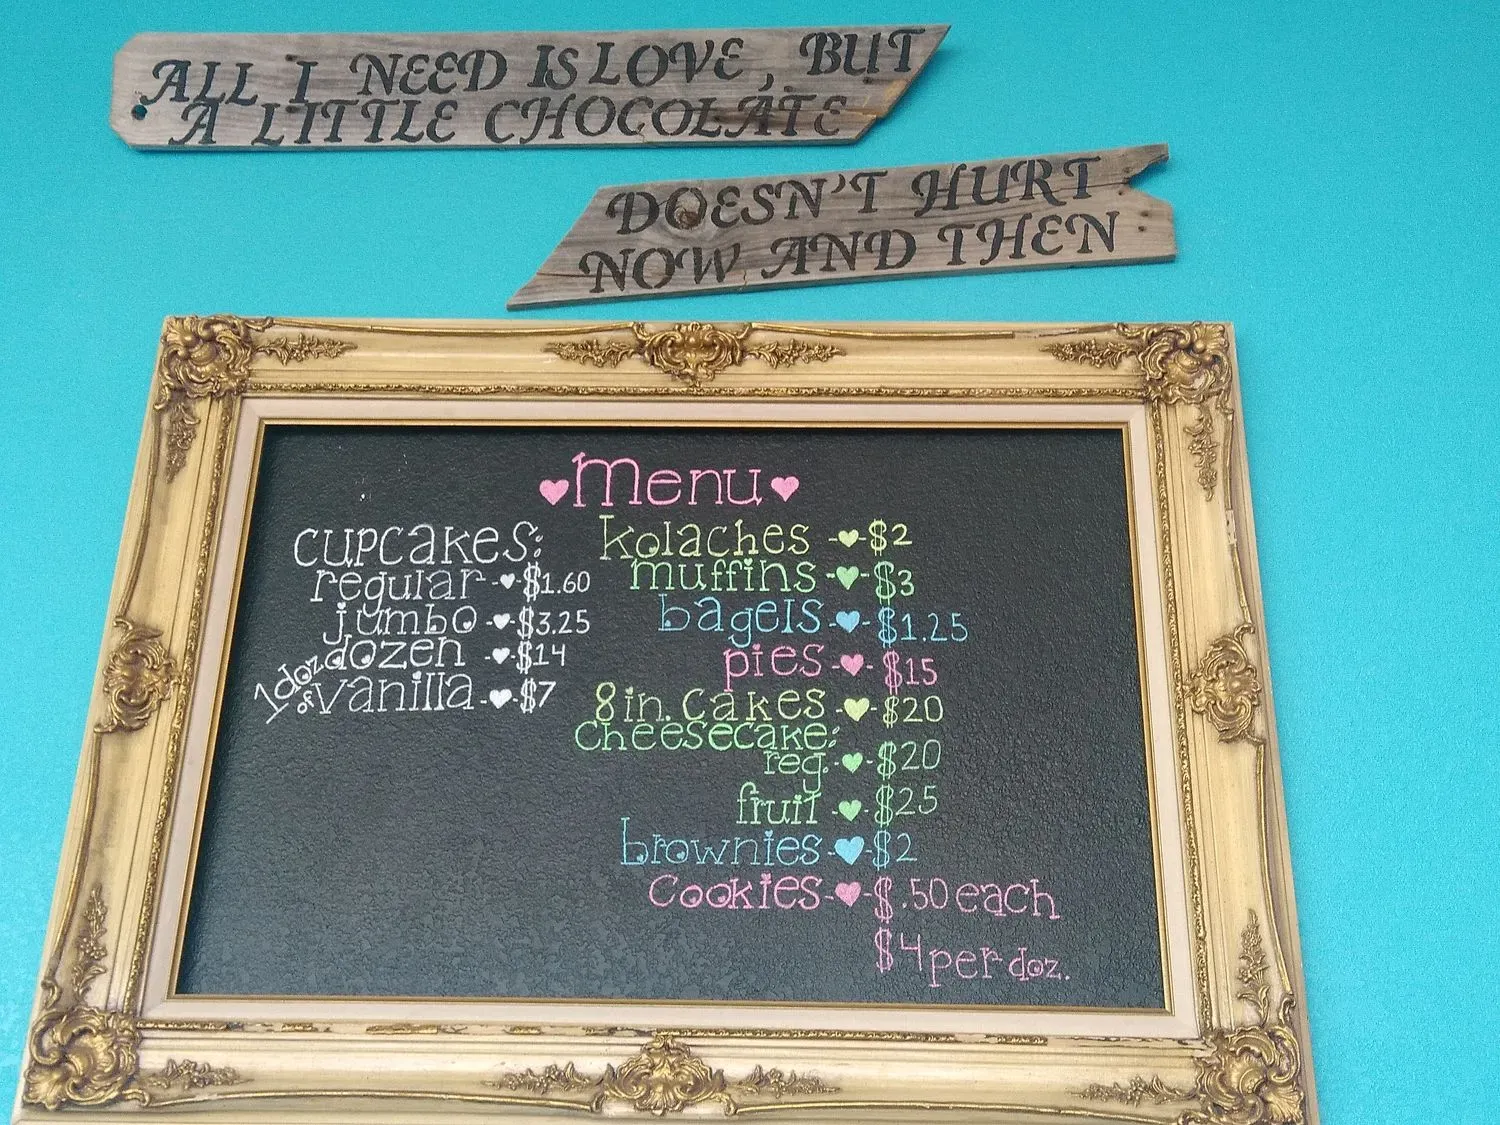 ALL I NEED IS LOVE, BUT
A LITTLE CHOCOLATE
DOESN'T HURT
NOW AND THEN
Menu
cupcakes:
regular - $1.60
jumbo - $3.25
dozen - $14
1 doz of vanilla - $7
kolaches - $2
muffins - $3
bagels - $1.25
pies - $15
8 in. cakes - $20
cheesecake:
reg. - $20
fruit - $25
brownies - $2
cookies - $.50 each
$4 per doz.